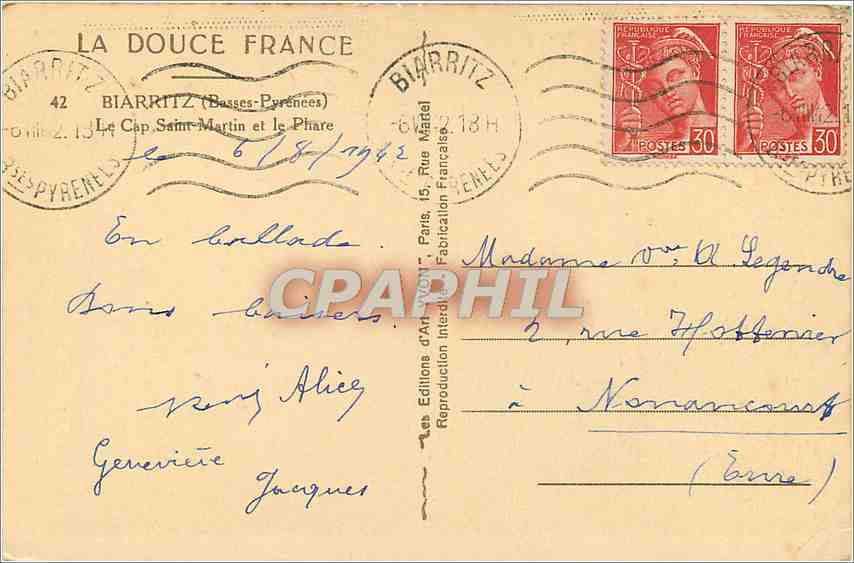 LA DOUCE FRANCE
42 BIARRITZ (Basses-Pyrénées)
Le Cap Saint-Martin et le Phare
le 6/8/1942
En ballade.
Bons baisers.
René Alice
Geneviève
Jacques
Les Editions d'Art "YVON", Paris, 15, Rue Martel
Reproduction Interdite Fabrication Française
BIARRITZ
-6 VIII 42. 18 H
BSES PYRENEES
BIARRITZ
-6 VIII 42. 18 H
BSES PYRENEES
REPUBLIQUE FRANÇAISE
POSTES 30
REPUBLIQUE FRANÇAISE
POSTES 30
Madame Vve A Legendre
2, rue
à Nonancourt
(Eure)
CPAPHIL